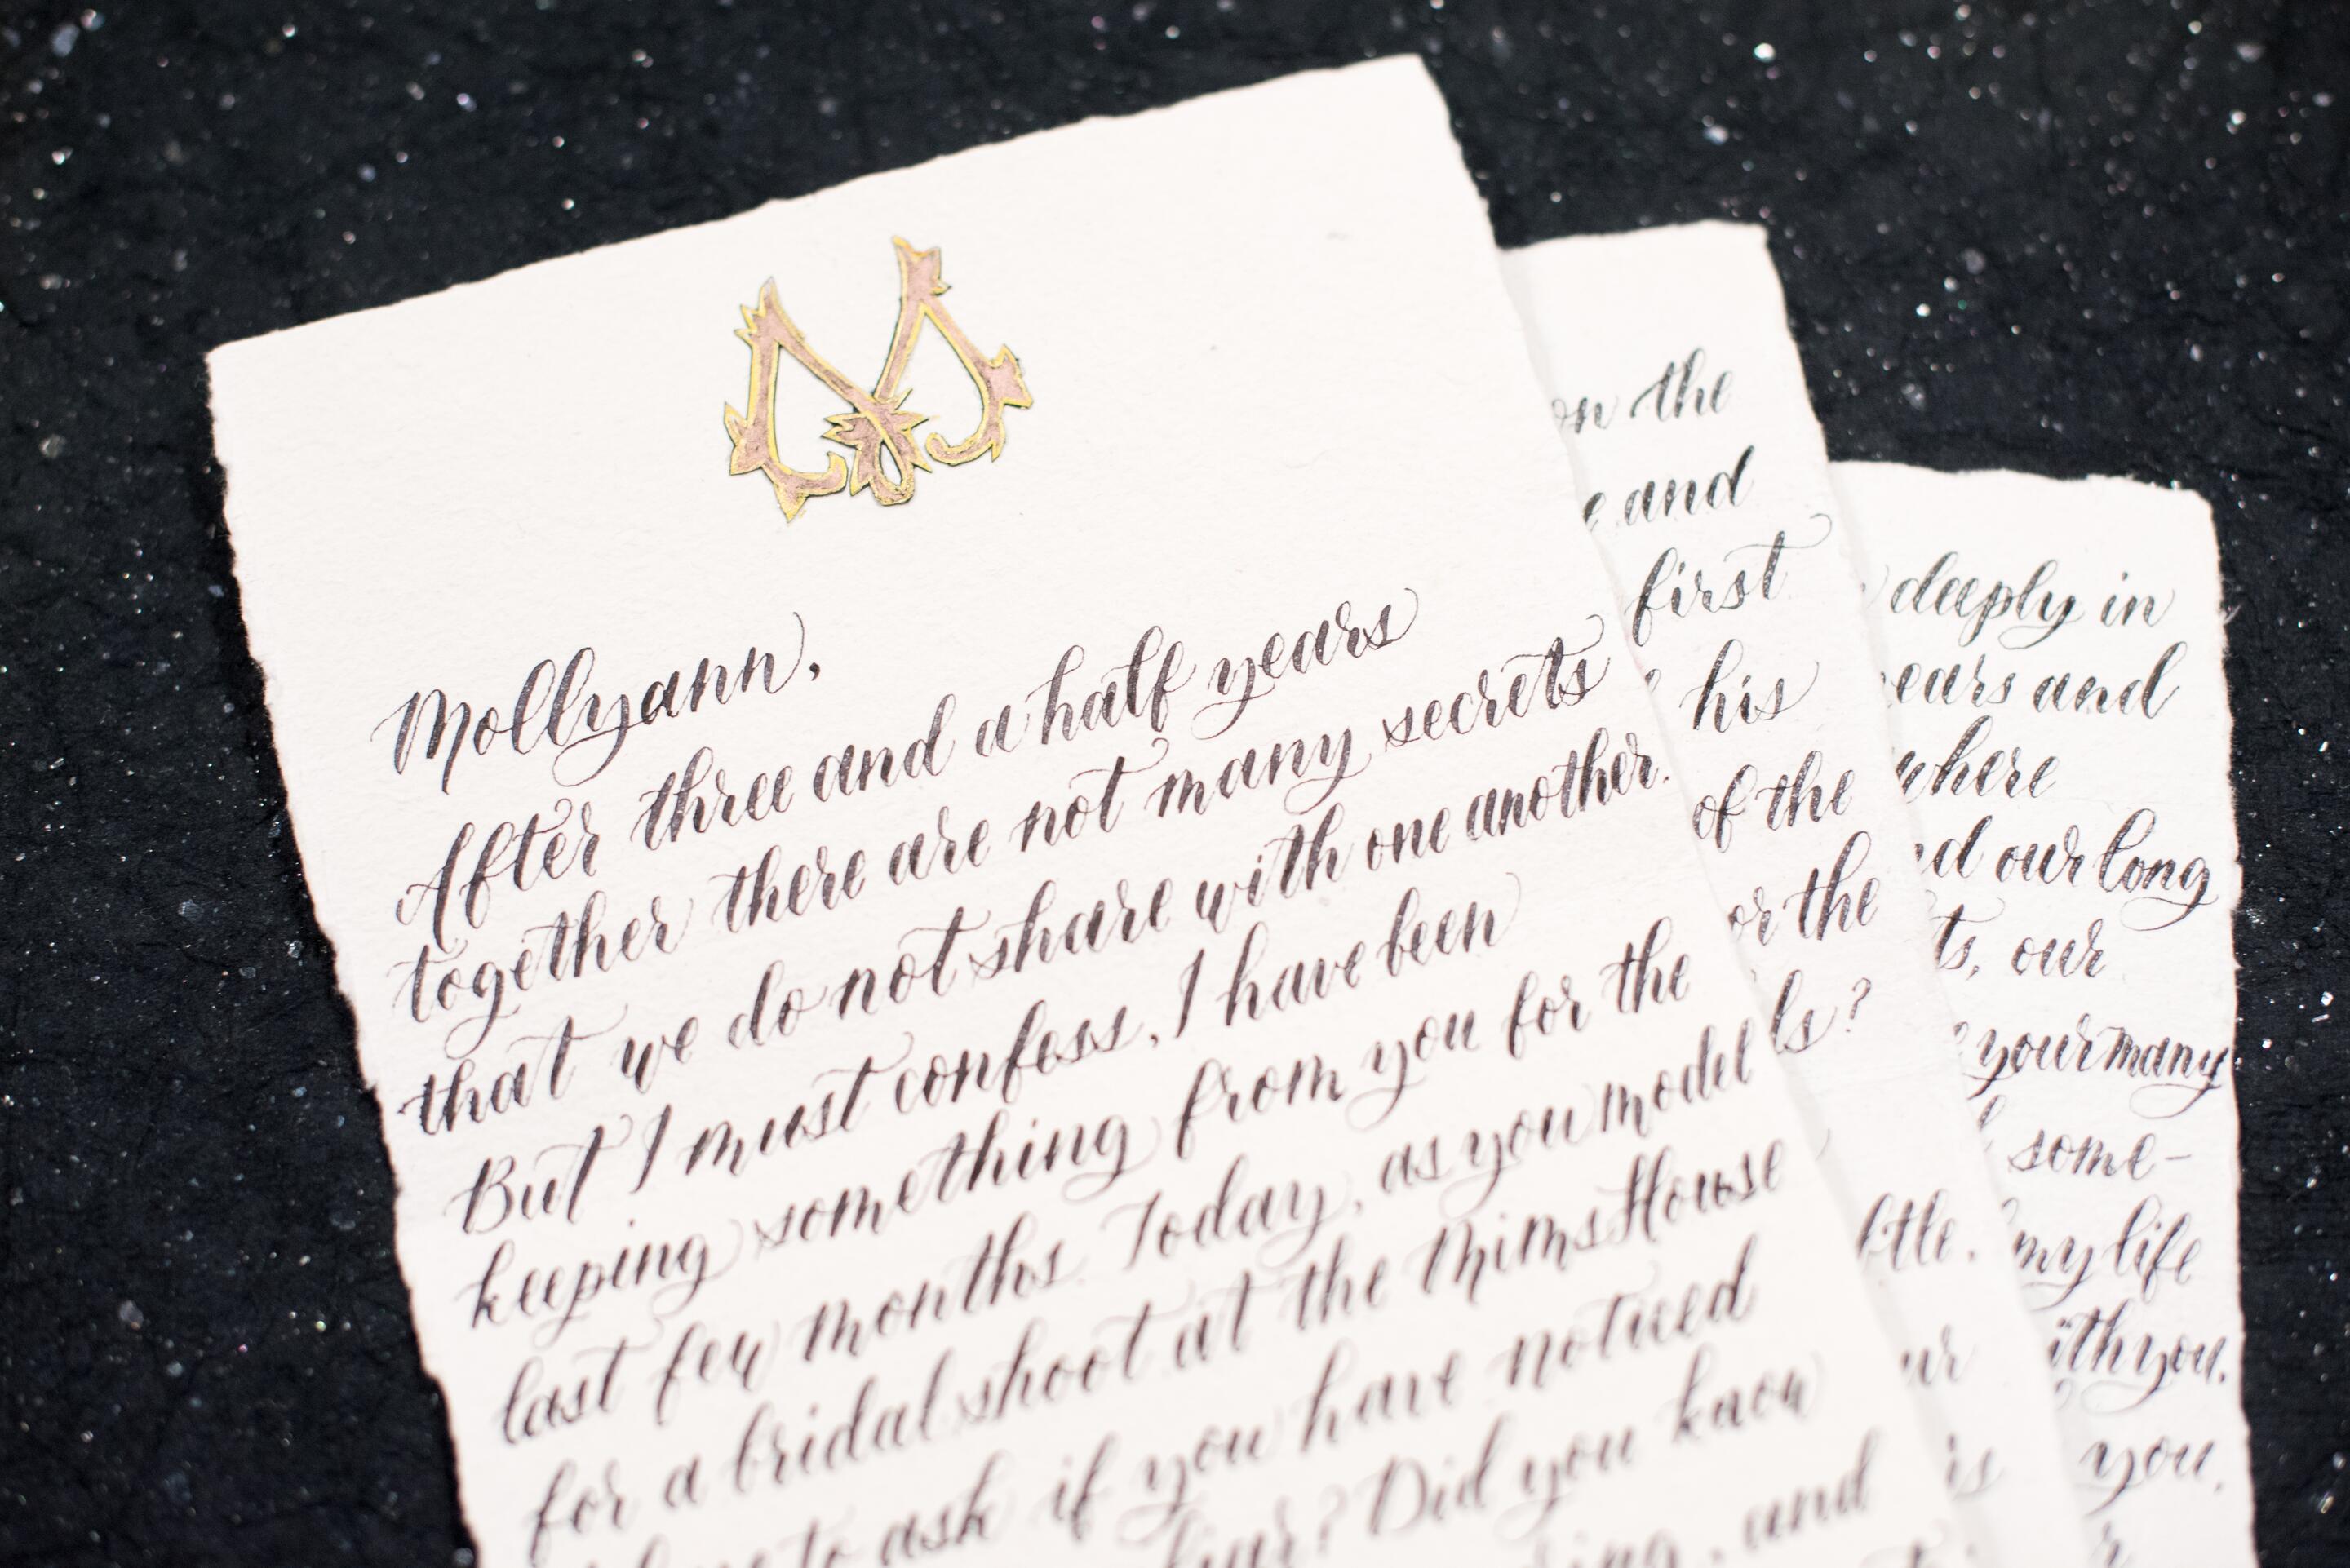 M
Mollyann,
After three and a half years
together there are not many secrets
that we do not share with one another.
But I must confess, I have been
keeping something from you for the
last few months. Today, as you model
for a bridal shoot at the Mims House
to ask if you have noticed
Did you know
, and
on the
and
first
his
of the
or the
?
deeply in
and
where
our long
, our
your many
some-
my life
with you.
you.